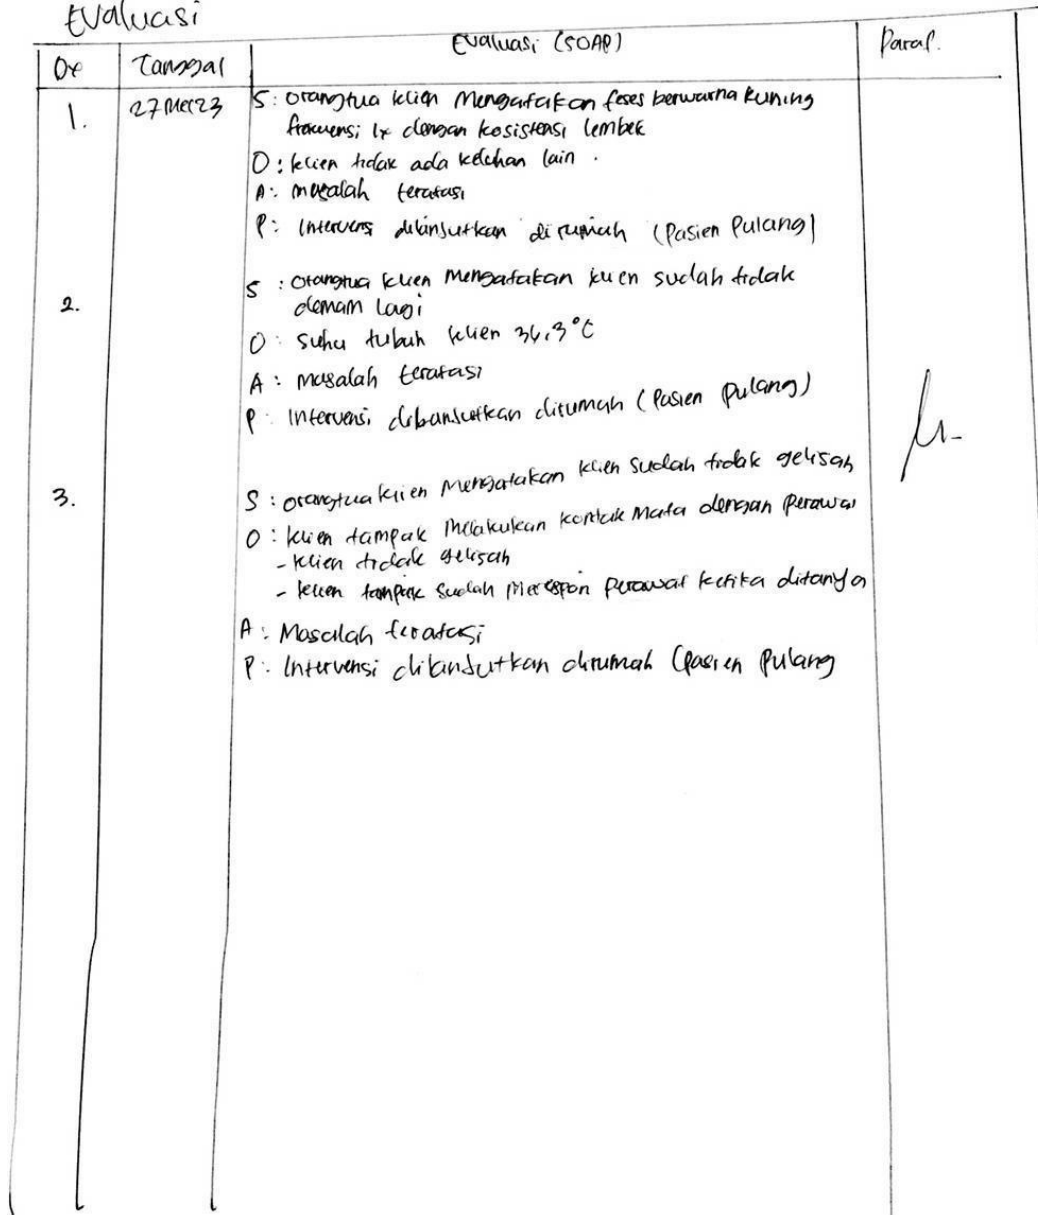 Evaluasi
Dx Tanggal Evaluasi (SOAP) Paraf.
1. 27 Mei 23 S: orangtua klien Mengatakan feses berwarna kuning
frekuensi 1x dengan kosistensi lembek
O: klien tidak ada keluhan lain.
A: masalah teratasi
P: Intervensi dilanjutkan di rumah (Pasien Pulang)
2. S: orangtua klien Mengatakan klien sudah tidak
demam lagi
O: suhu tubuh klien 36,3°C
A: masalah teratasi
P: Intervensi dilanjutkan dirumah (Pasien Pulang)
3. S: orangtua klien Mengatakan klien sudah tidak gelisah
O: klien tampak Melakukan kontak Mata dengan perawat
- klien tidak gelisah
- klien tampak sudah Merespon perawat ketika ditanya
A: Masalah teratasi
P: Intervensi dilanjutkan dirumah (Pasien Pulang